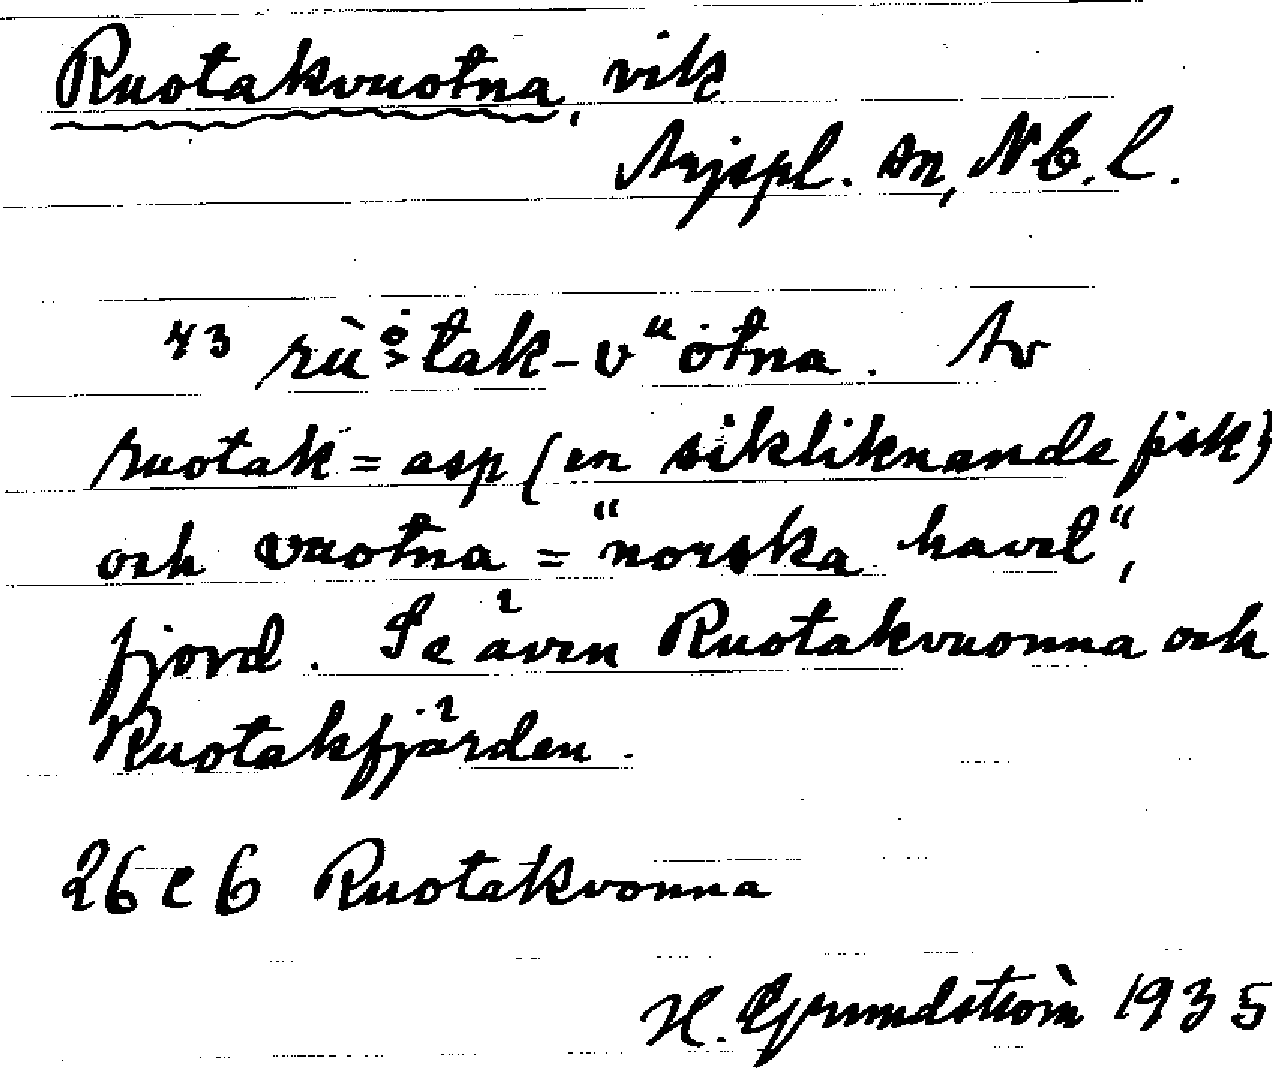 Ruotakvuotna, vik
Arjspl. sn, Nb. l.
43 rùo̊tak-vᵘȯtna. Av
ruotak = asp (en sikliknande fisk)
och vuotna = "norska havet",
fjord. Se även Ruotakvuonna och
Ruotakfjärden.
26 c 6 Ruotakvonna
H. Grundström 1935